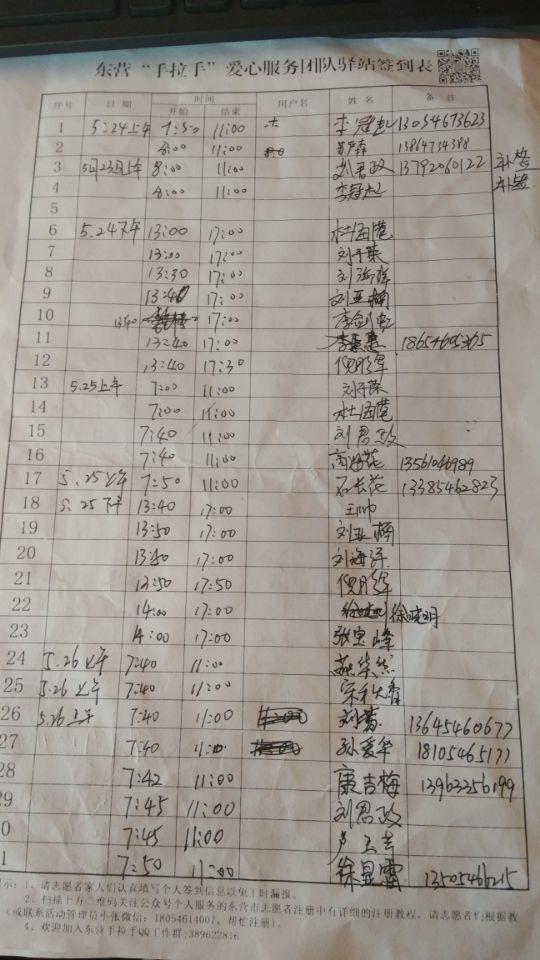 东营“手拉手”爱心服务团队驿站签到表
序号 日期 时间 用户名 姓名 备注
开始 结束
1 5.24上午 7:50 11:00 李冠起 13054673623
2 8:00 11:00 13864734388
3 5月23日上午 8:00 11:00 刘君政 13792060122 补签
4 8:00 11:00 李冠起 补签
5
6 5.24下午 13:00 17:00 杜海莲
7 13:00 17:00 刘于荣
8 13:30 17:00 刘海洋
9 13:40 17:00 刘亚楠
10 13:40 17:00
11 13:40 17:00 18654605365
12 13:40 17:30 倪月辉
13 5.25上午 7:00 11:00 刘于荣
14 7:00 11:00 杜海莲
15 7:40 11:00 刘君政
16 7:40 11:00 13561046989
17 5.25上午 7:50 11:00 石长花 13385462823
18 5.25下午 13:40 17:00 王帅
19 13:50 17:00 刘亚楠
20 13:50 17:00 刘海洋
21 13:50 17:50 倪月辉
22 14:00 17:00 徐晓明
23 14:00 17:00 张宝峰
24 5.26上午 7:40 11:00
25 5.26上午 7:40 11:00
26 5.26上午 7:40 11:00 13645460677
27 7:40 11:00 孙爱华 18105465177
28 7:42 11:00 康吉梅 13963356199
29 7:45 11:00 刘君政
0 7:45 11:00
1 7:50 11:00 徐显雷 13505466215
示：1、请志愿者家人们认真填写个人签到信息以免工时漏报。
2、扫描上方二维码关注公众号个人服务的东营市志愿者注册中有详细的注册教程，请志愿者们根据教
（或联系活动管理员小张微信：18054614007，帮忙注册）。
4、欢迎加入东营手拉手QQ工作群:389622816